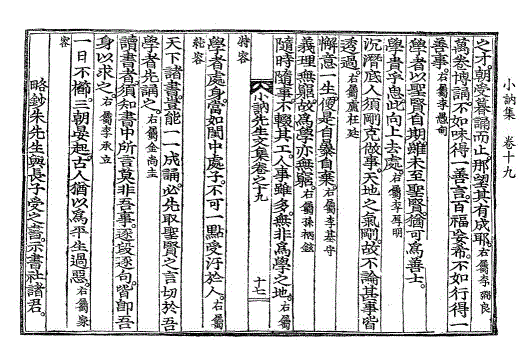 小訥集 卷十九
之才。朝受暮誦而止。那望其有成耶。右屬李炳良
萬卷博誦。不如味得一善言。百福安希。不如行得一
善事。右屬李愚甸
學者以聖賢自期。雖未至聖賢。猶可爲善士。
學貴乎思此向上去處。右屬李厚明
沉潛底人須剛克做事。天地之氣剛。故不論甚事皆
透過。右屬盧柱廷
懈意一生。便是自暴自棄。右屬李基守
義理無窮。故爲學亦無窮。右屬孫炳鉉
隨時隨事不輟其工。人事雖多。無非爲學之地。右屬
小訥先生文集卷之十九 十七
時容
學者處身。當如閨中處子。不可一點受汙於人。右屬
粘容
天下諸書。豈能一一成誦。必先取聖賢之言切於吾
學者先誦之。右屬金尚圭
讀書者須知書中所言莫非吾事。逐段逐句。皆即吾
身以求之。右屬李承立
一日不櫛。三朝晏起。古人猶以爲平生過惡。右屬彖
容
略鈔朱先生與長子受之書。示書社諸君。